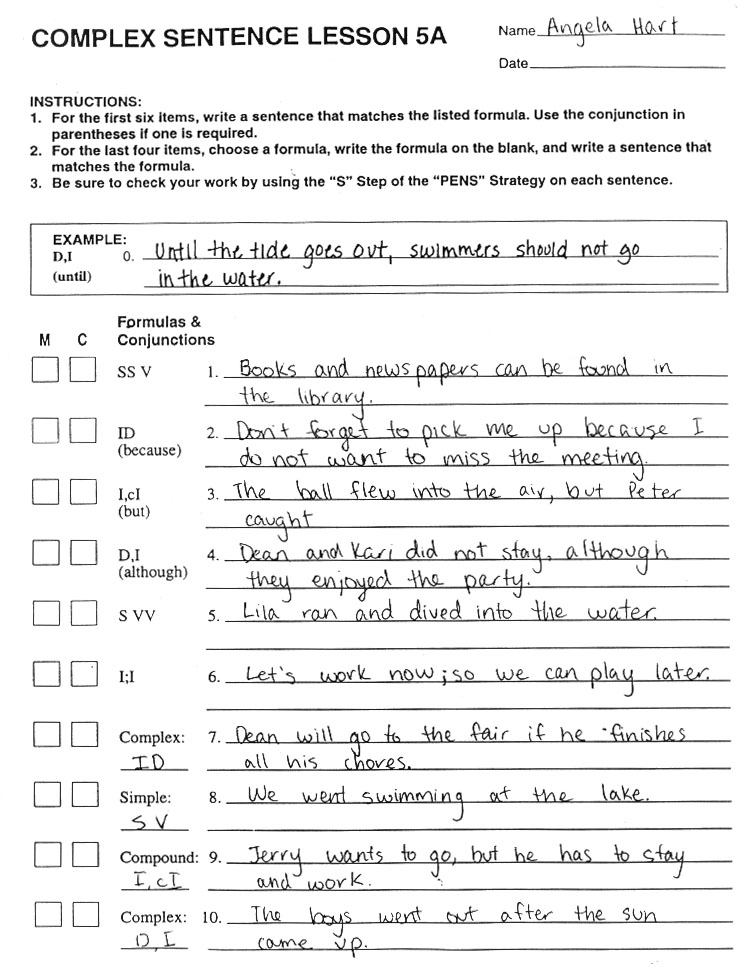 COMPLEX SENTENCE LESSON 5A
Name Angela Hart
Date
INSTRUCTIONS:
1. For the first six items, write a sentence that matches the listed formula. Use the conjunction in
parentheses if one is required.
2. For the last four items, choose a formula, write the formula on the blank, and write a sentence that
matches the formula.
3. Be sure to check your work by using the "S" Step of the "PENS" Strategy on each sentence.
EXAMPLE:
D,I 0. Until the tide goes out, swimmers should not go
(until) in the water.
Formulas &
M C Conjunctions
SS V 1. Books and newspapers can be found in
the library.
ID 2. Don't forget to pick me up because I
(because) do not want to miss the meeting.
I,cI 3. The ball flew into the air, but Peter
(but) caught
D,I 4. Dean and Kari did not stay, although
(although) they enjoyed the party.
S VV 5. Lila ran and dived into the water.
I;I 6. Let's work now; so we can play later.
Complex: 7. Dean will go to the fair if he finishes
ID all his chores.
Simple: 8. We went swimming at the lake.
S V
Compound: 9. Jerry wants to go, but he has to stay
I, cI and work.
Complex: 10. The boys went out after the sun
D, I came up.